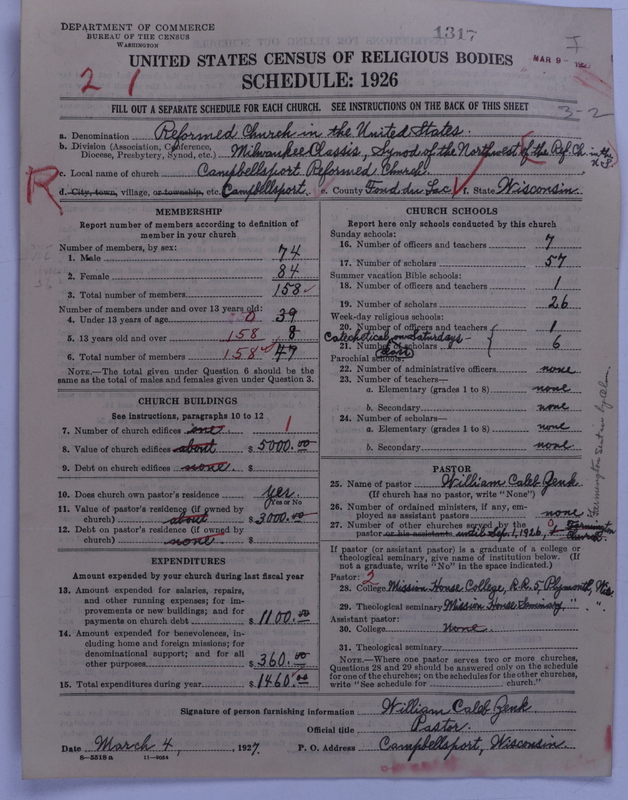 DEPARTMENT OF COMMERCE
BUREAU OF THE CENSUS
WASHINGTON
1317
I
MAR 9 -
UNITED STATES CENSUS OF RELIGIOUS BODIES
2 1
SCHEDULE: 1926
FILL OUT A SEPARATE SCHEDULE FOR EACH CHURCH. SEE INSTRUCTIONS ON THE BACK OF THIS SHEET
3-2
a. Denomination Reformed Church in the United States.
b. Division (Association, Conference, Diocese, Presbytery, Synod, etc.) Milwaukee Classis, Synod of the Northwest of the Ref. Ch. in the U.S.
c. Local name of church Campbellsport Reformed Church.
R
d. City, town, village, or township, etc. Campbellsport. e. County Fond du Lac f. State Wisconsin.
MEMBERSHIP
Report number of members according to definition of
member in your church
Number of members, by sex:
1. Male 74
2. Female 84
3. Total number of members 158
Number of members under and over 13 years old:
4. Under 13 years of age 0 39
5. 13 years old and over 158 8
6. Total number of members 158 47
NOTE.—The total given under Question 6 should be the
same as the total of males and females given under Question 3.
CHURCH BUILDINGS
See instructions, paragraphs 10 to 12
7. Number of church edifices one. 1
8. Value of church edifices about $ 5000.00
9. Debt on church edifices none. $
10. Does church own pastor's residence yes.
Yes or No
11. Value of pastor's residence (if owned by
church) about $ 3000.00
12. Debt on pastor's residence (if owned by
church) none. $
EXPENDITURES
Amount expended by your church during last fiscal year
13. Amount expended for salaries, repairs,
and other running expenses; for im-
provements or new buildings; and for
payments on church debt $ 1100.00
14. Amount expended for benevolences, in-
cluding home and foreign missions; for
denominational support; and for all
other purposes $ 360.00
15. Total expenditures during year $ 1460.00
CHURCH SCHOOLS
Report here only schools conducted by this church
Sunday schools:
16. Number of officers and teachers 7
17. Number of scholars 57
Summer vacation Bible schools:
18. Number of officers and teachers 1
19. Number of scholars 26
Week-day religious schools:
20. Number of officers and teachers 1
Catechetical on Saturdays -
21. Number of scholars 6
class
Parochial schools:
22. Number of administrative officers none
23. Number of teachers—
a. Elementary (grades 1 to 8) none
b. Secondary none
24. Number of scholars—
a. Elementary (grades 1 to 8) none
b. Secondary none
PASTOR
25. Name of pastor William Caleb Zenk
(If church has no pastor, write "None")
26. Number of ordained ministers, if any, em-
ployed as assistant pastors none
27. Number of other churches served by the 0 Farmington
pastor or his assistants until Sep. 1, 1926, 1 Church.
If pastor (or assistant pastor) is a graduate of a college or
theological seminary, give name of institution below. (If
not a graduate, write "No" in the space indicated.)
Pastor: 2
28. College Mission House College, R.R. 5, Plymouth, Wis.
29. Theological seminary Mission House Seminary, " "
Assistant pastor:
30. College None.
31. Theological seminary
NOTE.—Where one pastor serves two or more churches,
Questions 28 and 29 should be answered only on the schedule
for one of the churches; on the schedules for the other churches,
write "See schedule for church."
Signature of person furnishing information William Caleb Zenk
Official title Pastor.
Date March 4, , 1927. P. O. Address Campbellsport, Wisconsin.
8—5518 a 11—9054